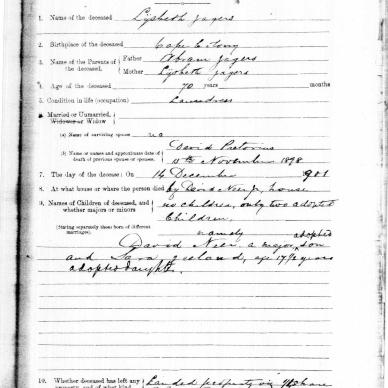 1. Name of the deceased Lijsbeth Jagers
2. Birthplace of the deceased Cape Colony
3. Name of the Parents of the deceased. Father Abram Jagers
Mother Lijsbeth Jagers
4. Age of the deceased 70 years months
5. Condition in life (occupation) Laundress
6. Married or Unmarried,
Widower or Widow
(a) Name of surviving spouse no
David Pretorius
(b) Name or names and approximate date of
death of previous spouse or spouses. November 1898
7. The day of the decease: On 14 December 1901
8. At what house or where the person died by David house
9. Names of Children of deceased, and
whether majors or minors no children, only two adopted
Children,
(Stating separately those born of different
marriages). namely adopted
David a major, son
and Sara age 17½ years
adopted daught.
10. Whether deceased has left any Landed property in
property, and of what kind